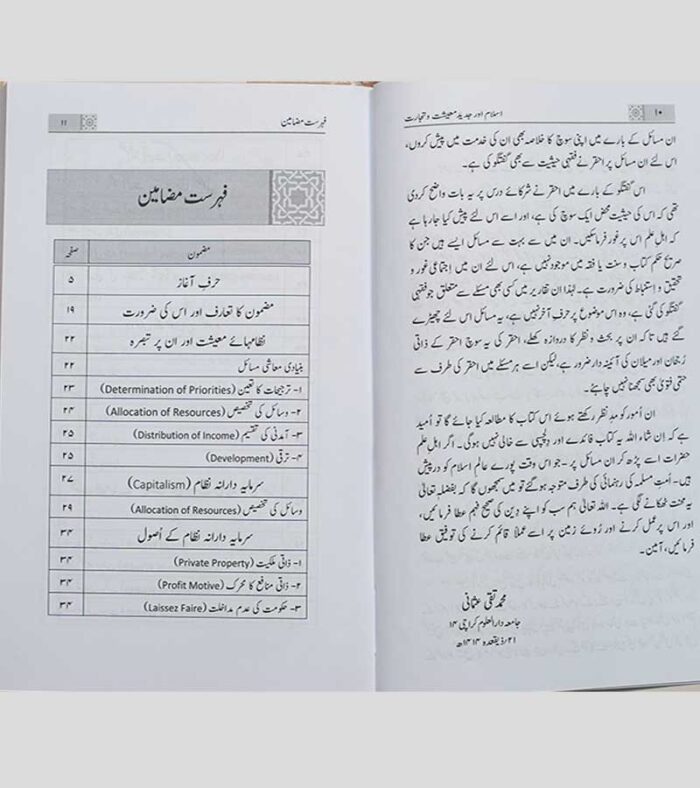 ۱۰
اسلام اور جدید معیشت و تجارت
ان مسائل کے بارے میں اپنی سوچ کا خلاصہ بھی ان کی خدمت میں پیش کروں،
اس لئے ان مسائل پر احقر نے فقہی حیثیت سے بھی گفتگو کی ہے۔
اس گفتگو کے بارے میں احقر نے شرکائے درس پر یہ بات واضح کردی
تھی کہ اس کی حیثیت محض ایک سوچ کی ہے، اور اسے اس لئے پیش کیا جارہا ہے
کہ اہلِ علم اس پر غور فرماسکیں۔ ان میں سے بہت سے مسائل ایسے ہیں جن کا
صریح حکم کتاب و سنت یا فقہ میں موجود نہیں ہے، اس لئے ان میں اِجتماعی غور و
تحقیق و اِستنباط کی ضرورت ہے۔ لہٰذا ان تقاریر میں کسی بھی مسئلے سے متعلق جو فقہی
گفتگو کی گئی ہے، وہ اس موضوع پر حرفِ آخر نہیں ہے، یہ مسائل اس لئے چھیڑے
گئے ہیں تاکہ ان پر بحث و نظر کا دروازہ کھلے، احقر کی یہ سوچ احقر کے ذاتی
رُجحان اور میلان کی آئینہ دار ضرور ہے، لیکن اسے ہر مسئلے میں احقر کی طرف سے
حتمی فتویٰ بھی سمجھنا نہیں چاہئے۔
ان اُمور کو مدِ نظر رکھتے ہوئے اس کتاب کا مطالعہ کیا جائے گا تو اُمید
ہے کہ اِن شاء اللہ یہ کتاب فائدے اور دِلچسپی سے خالی نہیں ہوگی۔ اگر اہلِ علم
حضرات اسے پڑھ کر ان مسائل پر - جو اس وقت پورے عالمِ اسلام کو درپیش
ہیں - اُمتِ مسلمہ کی رہنمائی کی طرف متوجہ ہوگئے تو میں سمجھوں گا کہ بفضلہٖ تعالیٰ
یہ محنت ٹھکانے لگی ہے۔ اللہ تعالیٰ ہم سب کو اپنے دِین کی صحیح فہم عطا فرمائیں،
اور اس پر عمل کرنے اور رُوئے زمین پر اسے عملاً قائم کرنے کی توفیق عطا
فرمائیں، آمین۔
محمد تقی عثمانی
جامعہ دارالعلوم کراچی ۱۴
۲۱/ ذیقعدہ ۱۴۱۴ھ
فہرست مضامین
۱۱
فہرست مضامین
مضمون صفحہ
حرفِ آغاز ۵
مضمون کا تعارف اور اس کی ضرورت ۱۹
نظامہائے معیشت اور ان پر تبصرہ ۲۲
بنیادی معاشی مسائل ۲۲
۱- ترجیحات کا تعین (Determination of Priorities) ۲۳
۲- وسائل کی تخصیص (Allocation of Resources) ۲۴
۳- آمدنی کی تقسیم (Distribution of Income) ۲۵
۴- ترقی (Development) ۲۵
سرمایہ دارانہ نظام (Capitalism) ۲۷
وسائل کی تخصیص (Allocation of Resources) ۲۹
سرمایہ دارانہ نظام کے اُصول ۳۴
۱- ذاتی ملکیت (Private Property) ۳۴
۲- ذاتی منافع کا محرک (Profit Motive) ۳۴
۳- حکومت کی عدم مداخلت (Laissez Faire) ۳۴